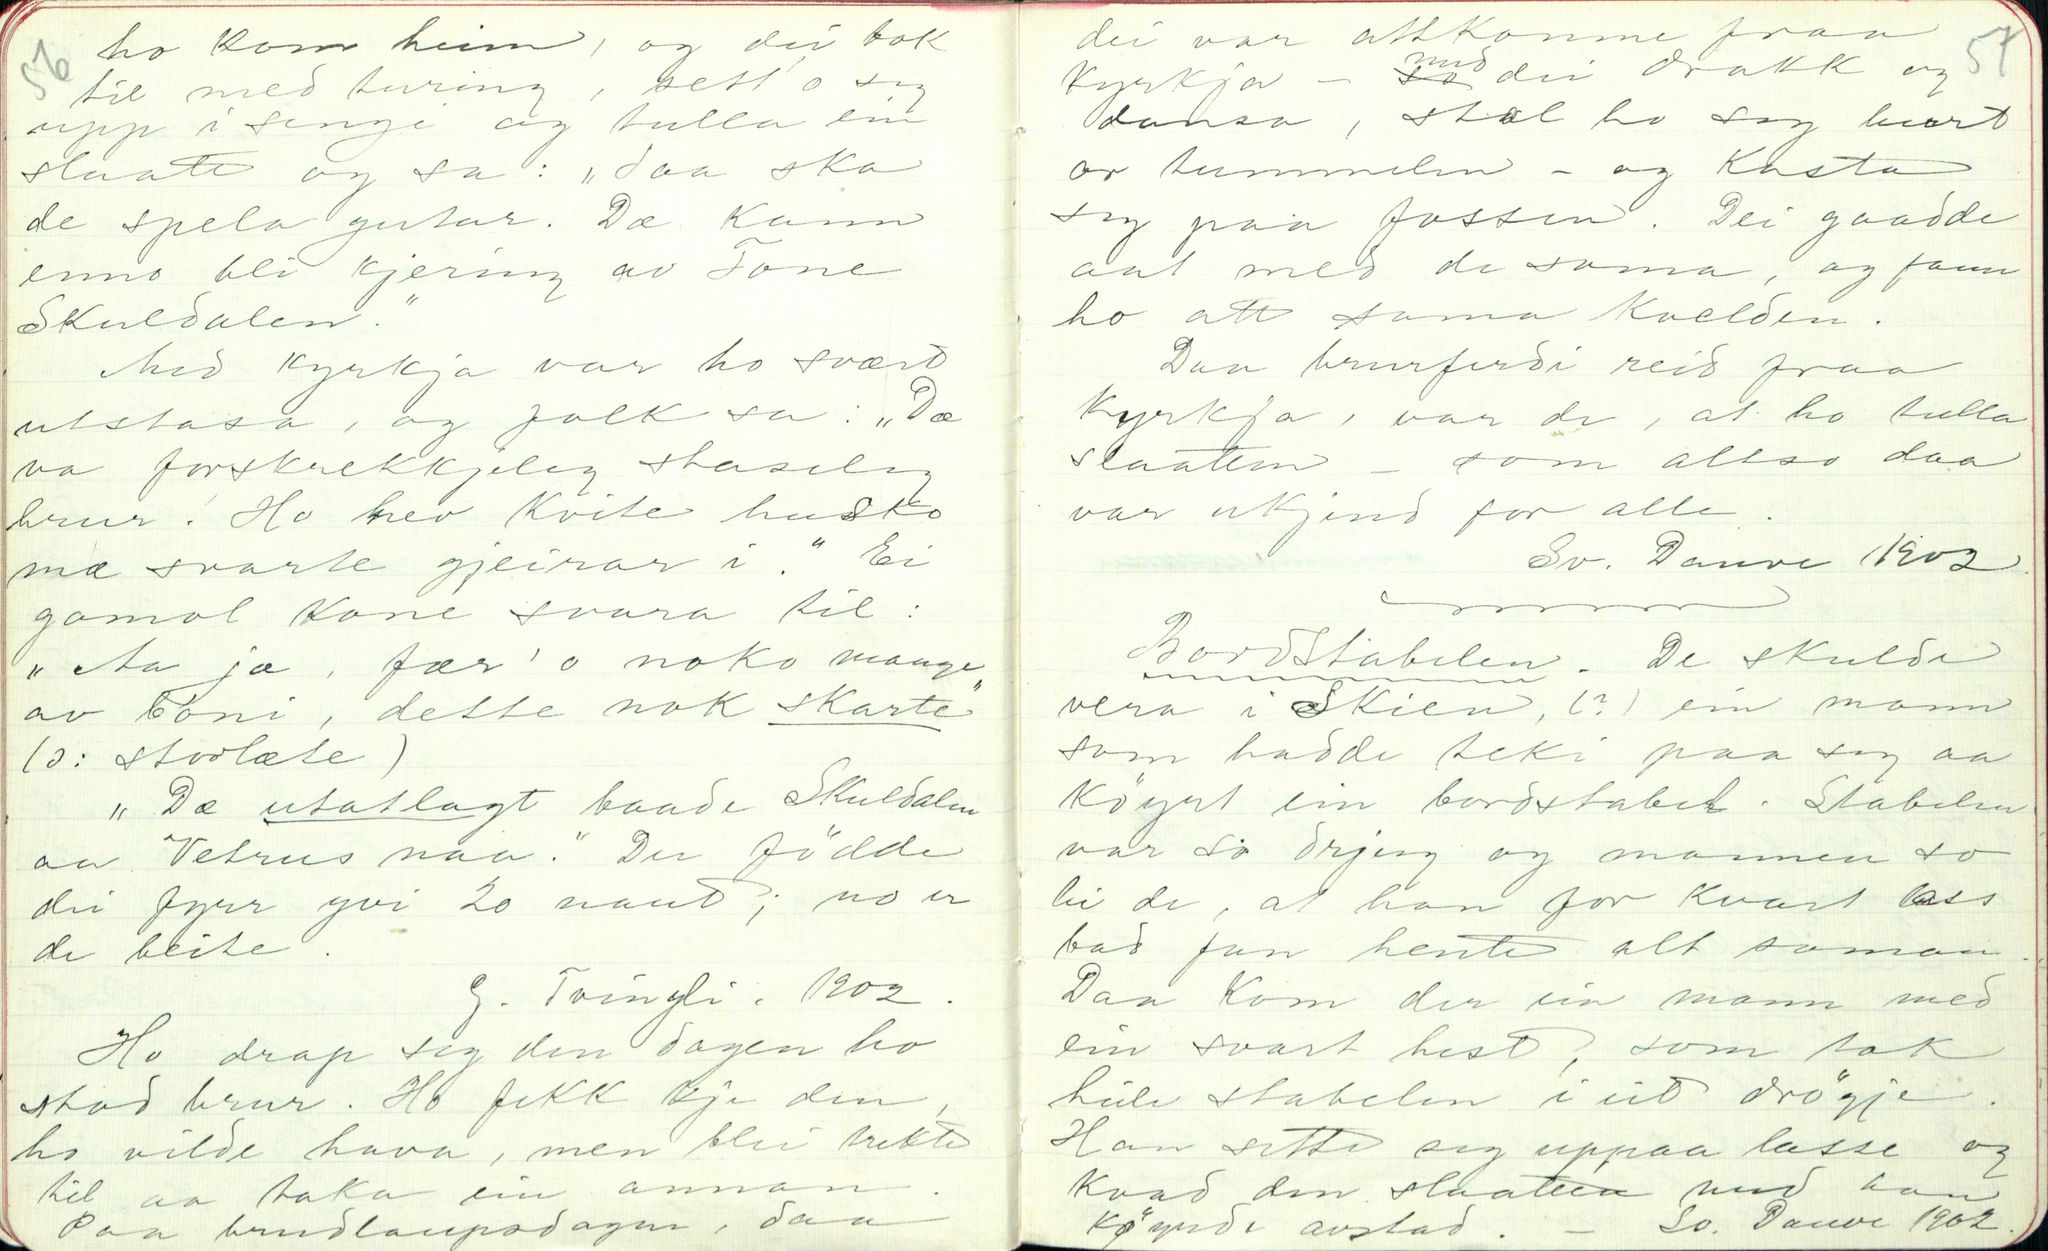 56
ho kom heim, og dei tok
til med turing, sett' o seg
upp i sengi og tulla ein
slaatt og sa: „Daa ska
de spela gutar. Dæ kann
enno bli kjering av Tone
Skuldalen."
Med kyrkja var ho svært
utstasa, og folk sa: „Dæ
va forskrekkjeleg staseleg
brur! Ho hev kvite husko
mæ svarte gjeirar i." Ei
gomol kone svara til:
„Aa ja, fær' o noko mange
av bóni, dette nok skarte"
(ɔ: storlæte)
„Dæ utatlagt baade Skuldalen
aa Vetrus naa." Der födde
dei fyrr yvi 20 naut; no er
de beite.
G. Tvingli. 1902.
Ho drap seg den dagen ho
stod brur. Ho fekk kje den,
ho vilde hava, men blei trekt
til aa taka ein annan.
Paa brudlaupsdagen, daa
57
dei var attkomne fraa
kyrkja – med dei drakk og
dansa, stal ho seg burt
or tummelen – og kasta
seg paa fossen. Dei gaadde
aat med de soma, og fann
ho att sama kvelden.
Daa brurferdi reid fraa
kyrkja, var de, at ho tulla
slaatten – som altso daa
var ukjend for alle.
Sv. Dauve 1902.
Bordstabelen. De skulde
vera i Skien, (?) ein mann
som hadde teki paa seg aa
köyrt ein bordstabel. Stabelen
var so drjug og mannen so
lei de, at han for kvart lass
bad fan hente alt saman.
Daa kom der ein mann med
ein svart hest, som tok
heile stabelen i eit drögje.
Han sette seg uppaa lasse og
kvad den slaatten med han
köyrde avstad. – Sv. Dauve 1902.